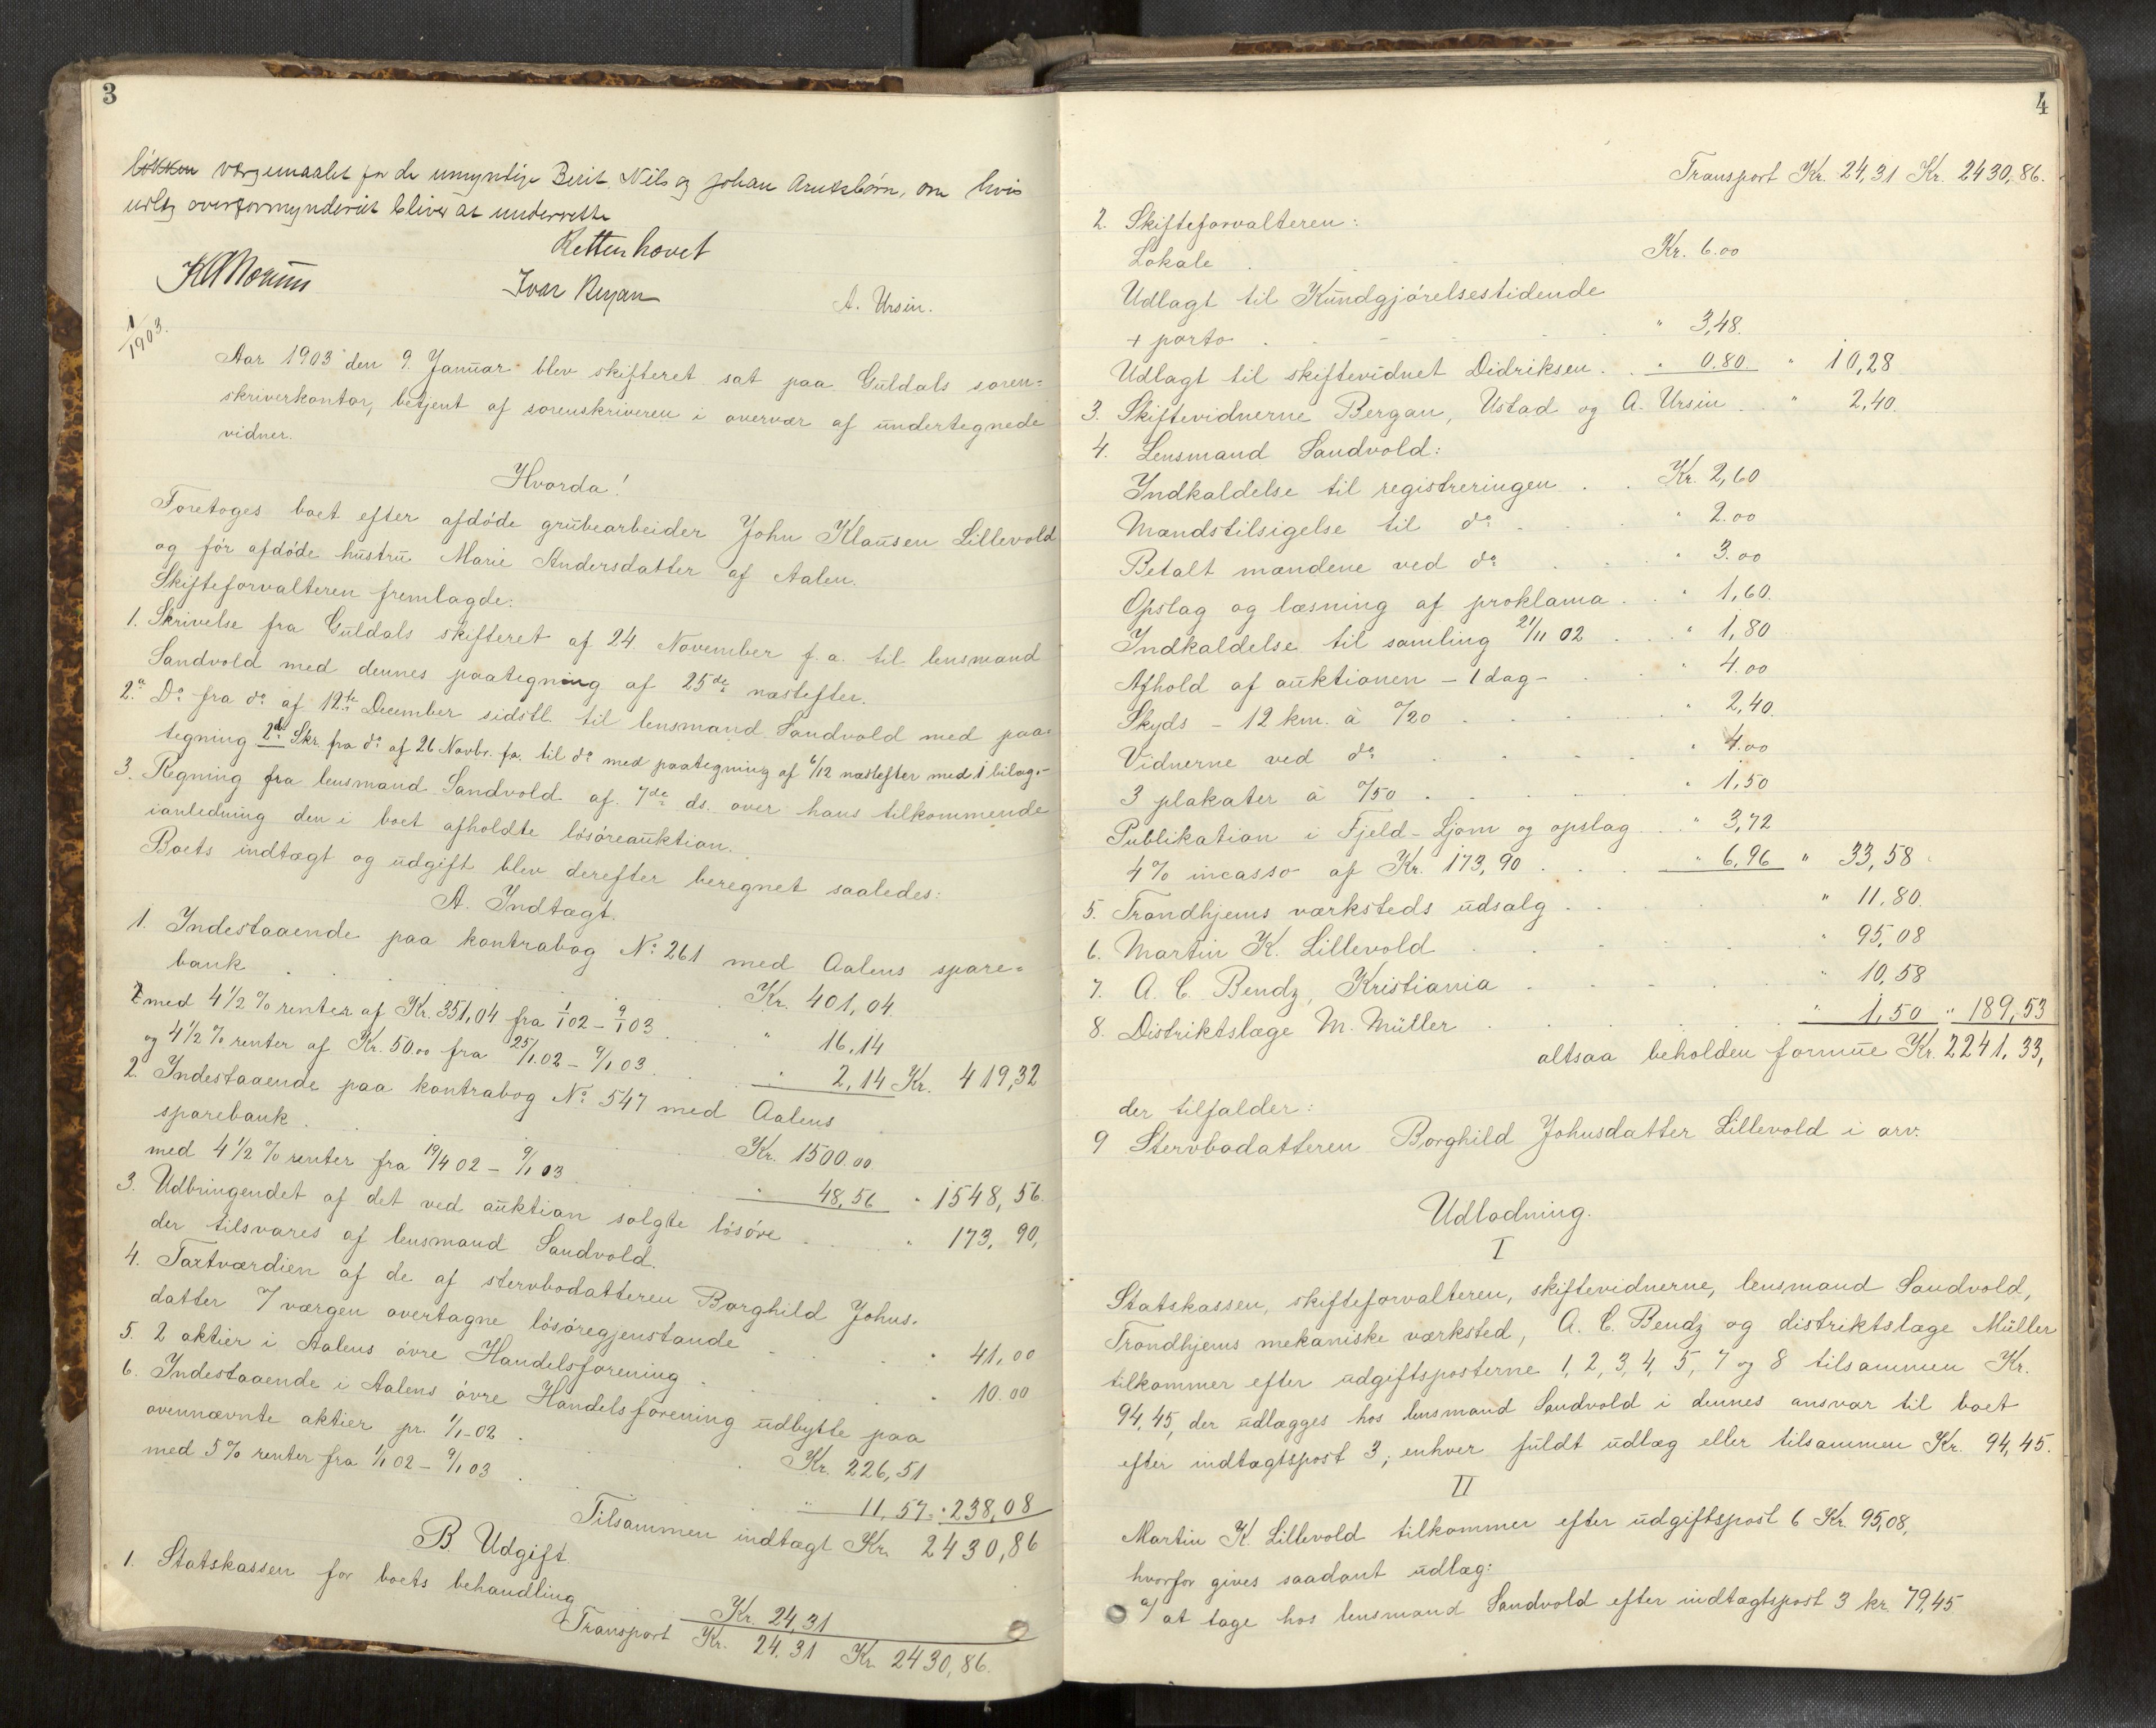 3
værgemaalet for de umyndige Berit, Nils og Johan Arntsbørn, om hvis
udlæg overformynderiet bliver at underrette
Retten hævet
Ivar Bergan
A. Ursin.
1/1903.
Aar 1903 den 9. Januar blev skifteret sat paa Guldals soren=
skriverkontor, betjent af sorenskriveren i overvær af undertegnede
vidner.
Hvorda!
Foretoges boet efter afdøde grubearbeider John Klausen Lillevold
og før afdøde hustru Marie Andersdatter af Aalen.
Skifteforvalteren fremlagde:
1. Skrivelse fra Guldals skifteret af 24. November f.a. til lensmand
Sandvold med dennes paategning af 25de næstefter.
2.a Do fra do af 12te December sidstl. til lensmand Sandvold med paa=
tegning 2b: Skr. fra do af 26 Novbr. f.a. til do med paategning af 6/12 næstefter med 1 bilag.-
3. Regning fra lensmand Sandvold af 7de ds. over hans tilkommende
ianledning den i boet afholdte løsøreauktion.
Boets indtægt og udgift blev derefter beregnet saaledes:
A. Indtægt.
1. Indestaaende paa kontrabog No 261 med Aalens spare=
bank . . . Kr. 401,04
med 4 1/2 % renter af Kr. 351,04 fra 1/1 02 - 9/1 03 . " 16,14
og 4 1/2 % renter af Kr. 50.00 fra 25/1.02 - 9/1 03 . . " 2,14 Kr. 419,32
2. Indestaaende paa kontrabog No 547 med Aalens
sparebank . . . Kr. 1500.00
med 4 1/2 % renter fra 19/4 02 - 9/1 03 . . " 48,56 " 1548,56.
3. Udbringendet af det ved auktion solgte løsøre . . " 173,90,
der tilsvares af lensmand Sandvold.
4. Taxtværdien af de af stervbodatteren Borghild Johns=
datter 7/ værgen overtagne løsøregjenstande . . " 41,00
5. 2 aktier i Aalens øvre Handelsforening . . " 10.00
6. Indestaaende i Aalens øvre Handelsforening udbytte paa
ovennævnte aktier pr. 1/1-02 . . Kr. 226,51
med 5 % renter fra 1/1 02 - 9/1 03 . . " 11,57 " 238,08
Tilsammen indtægt Kr. 2430,86
B. Udgift.
1. Statskassen for boets behandling Kr. 24,31
Transport Kr. 24.31 Kr. 2430,86.
4
Transport Kr. 24,31 Kr. 2430,86.
2. Skifteforvalteren:
Lokale . . . Kr. 6.00
Udlagt til Kundgjørelsestidende
+ porto . . . " 3,48.
Udlagt til skiftevidnet Didriksen . . " 0.80 " 10,28
3. Skiftevidnerne Bergan, Ustad og A. Ursin . . " 2,40.
4. Lensmand Sandvold:
Indkaldelse til registreringen . . Kr. 2,60
Mandstilsigelse til do . . " 2.00
Betalt mændene ved do . . " 3.00
Opslag og læsning af proklama . . " 1,60.
Indkaldelse til samling 21/11 02 . . " 1,80
Afhold af auktionen - 1 dag - . . " 4.00
Skyds - 12 km. à 7/20 . . " 2,40.
Vidnerne ved do . . " 4.00
3 plakater à 7/50 . . " 1,50
Publikation i Fjeld-Ljom og opslag . . " 3,72
4 % incasso af Kr. 173,90 . . " 6,96 " 33,58
5. Trondhjems værksteds udsalg . . " 11,80.
6. Martin K. Lillevold . . " 95,08
7. A. C. Bendz, Kristiania . . " 10,58
8. Distriktslæge M. Müller . . " 1,50 " 189,53
altsaa beholden formue Kr. 2241,33,
der tilfalder:
9 Stervbodatteren Borghild Johnsdatter Lillevold i arv.
Udlodning.
I
Statskassen, skifteforvalteren, skiftevidnerne, lensmand Sandvold,
Trondhjems mekaniske værksted, A. C. Bendz og distriktslæge Müller
tilkommer efter udgiftsposterne 1, 2, 3, 4, 5, 7 og 8 tilsammen Kr.
94,45, der udlægges hos lensmand Sandvold i dennes ansvar til boet
efter indtægtspost 3; enhver fuldt udlæg eller tilsammen Kr. 94,45.
II
Martin K. Lillevold tilkommer efter udgiftspost 6 Kr. 95,08,
hvorfor gives saadant udlæg:
a/ at tage hos lensmand Sandvold efter indtægtspost 3 kr. 79,45